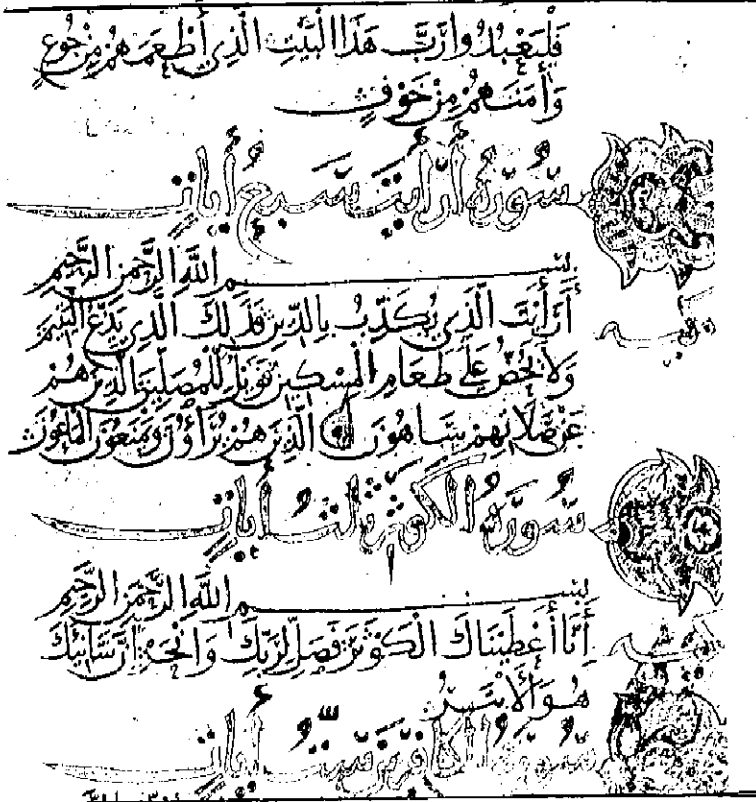 فَلْيَعْبُدُوا رَبَّ هَذَا الْبَيْتِ الَّذِي أَطْعَمَهُمْ مِنْ جُوعٍ
وَأَمَنَهُمْ مِنْ خَوْفٍ
سُورَةُ أَرَأَيْتَ سَبْعُ أَيَاتٍ
بِسْمِ اللَّهِ الرَّحْمَنِ الرَّحِيمِ
أَرَأَيْتَ الَّذِي يُكَذِّبُ بِالدِّينِ فَذَلِكَ الَّذِي يَدُعُّ الْيَتِيمَ
وَلَا يَحُضُّ عَلَى طَعَامِ الْمِسْكِينِ فَوَيْلٌ لِلْمُصَلِّينَ الَّذِينَ هُمْ
عَنْ صَلَاتِهِمْ سَاهُونَ الَّذِينَ هُمْ يُرَاؤُنَ وَيَمْنَعُونَ الْمَاعُونَ
سُورَةُ الْكَوْثَرِ ثَلَثُ أَيَاتٍ
بِسْمِ اللَّهِ الرَّحْمَنِ الرَّحِيمِ
إِنَّا أَعْطَيْنَاكَ الْكَوْثَرَ فَصَلِّ لِرَبِّكَ وَانْحَرْ إِنَّ شَانِئَكَ
هُوَ الْأَبْتَرُ
سُورَةُ الْكَافِرِينَ سِتُّ أَيَاتٍ